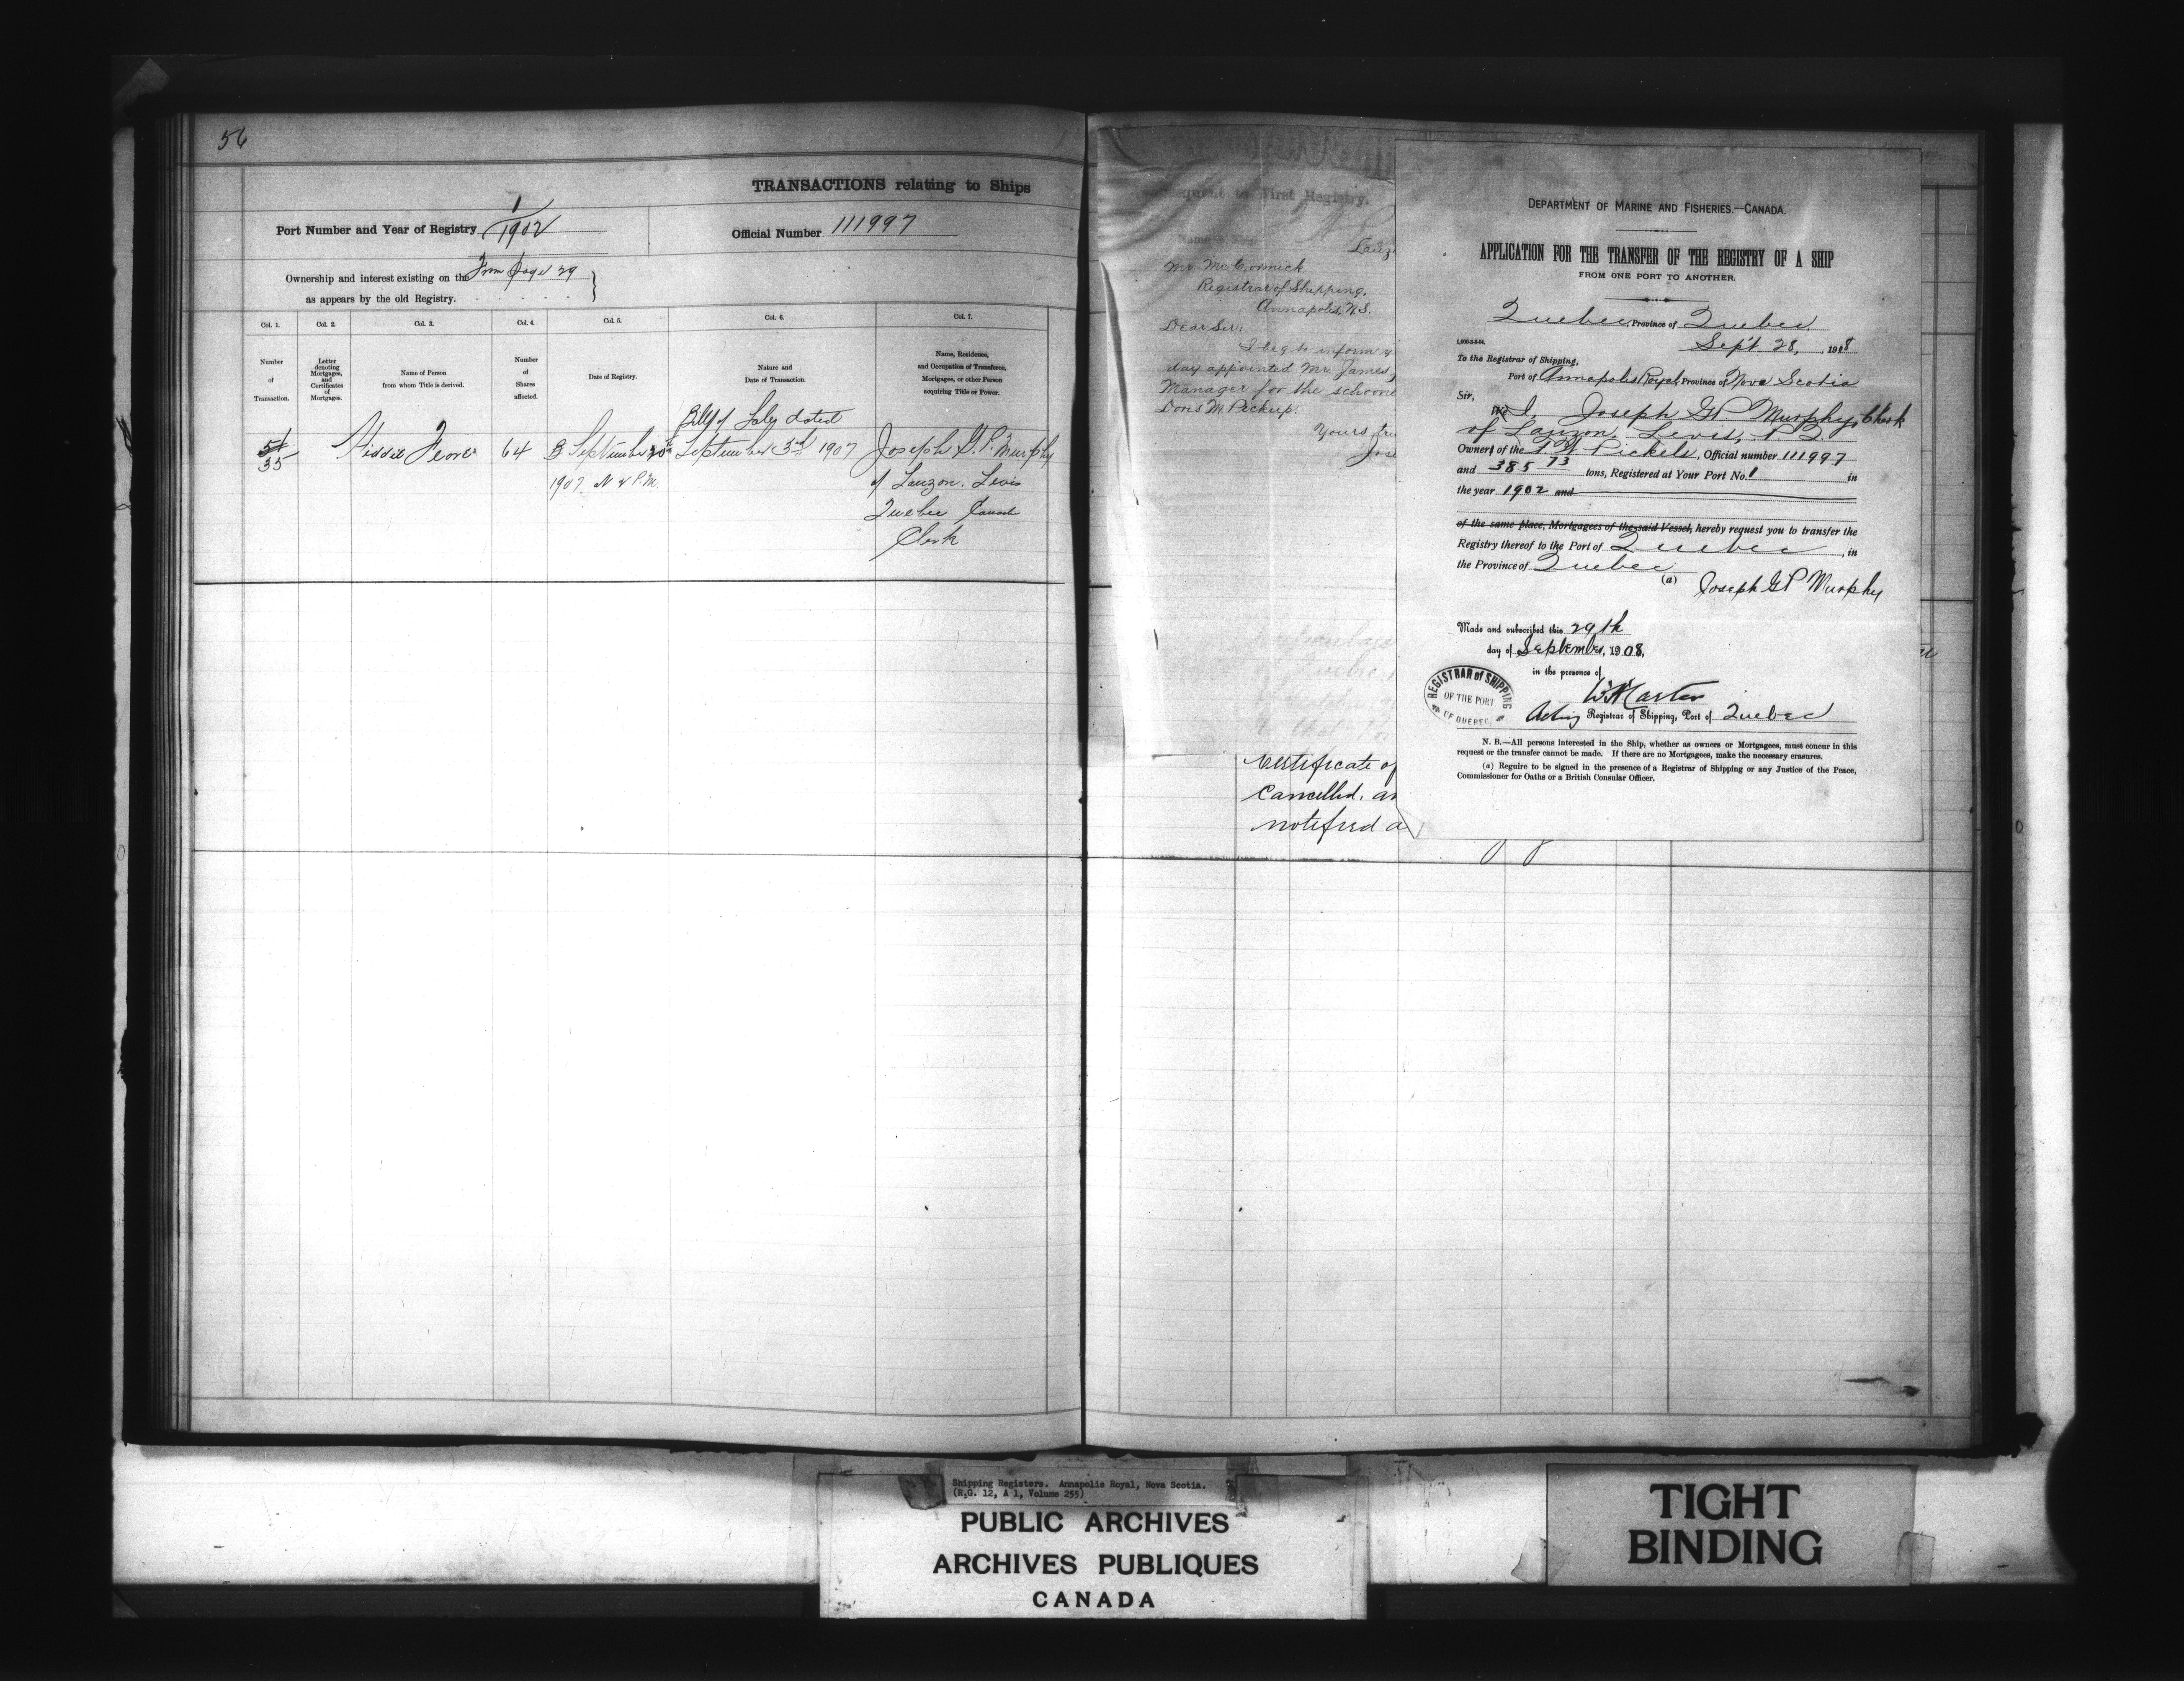 56
TRANSACTIONS relating to Ships
Port Number and Year of Registry 1/1902
Official Number 111997
Ownership and interest existing on the From page 29
as appears by the old Registry.
Col. 1. Col. 2. Col. 3. Col. 4. Col. 5. Col. 6. Col. 7.
Number of Transaction.
Letter denoting Mortgages, and Certificates of Mortgages.
Name of Person from whom Title is derived.
Number of Shares affected.
Date of Registry.
Nature and Date of Transaction.
Name, Residence, and Occupation of Transferee, Mortgagee, or other Person acquiring Title or Power.
Bill of Sale dated
35 64 September 1907 September 3rd 1907 Joseph G. P. Murphy
1907 P.M. of Lauzon, Levis
Quebec Canada
Clerk
subsequent to First Registry.
Lauz
Mr. McCormick,
Registrar of Shipping,
Annapolis, N.S.
Dear Sir:
I beg to inform y
day appointed Mr. James
Manager for the schoone
Doris M. Pickup.
Yours tru
Jose
Certificate of
cancelled, an
notified a
DEPARTMENT OF MARINE AND FISHERIES.—CANADA.
APPLICATION FOR THE TRANSFER OF THE REGISTRY OF A SHIP
FROM ONE PORT TO ANOTHER.
Quebec, Province of Quebec,
Sept. 28, 1908
To the Registrar of Shipping,
Port of Annapolis Royal, Province of Nova Scotia
Sir,
We I, Joseph G. P. Murphy, Clerk
of Lauzon, Levis, P. Q.
Owner of the F. W. Pickels, Official number 111997
and 385 73 tons, Registered at Your Port No. 1 in
the year 1902 and
of the same place, Mortgagees of the said Vessel, hereby request you to transfer the
Registry thereof to the Port of Quebec, in
the Province of Quebec
(a) Joseph G P Murphy
Made and subscribed this 29th
day of September, 1908,
in the presence of
REGISTRAR of SHIPPING
OF THE PORT
OF QUEBEC.
Acting Registrar of Shipping, Port of Quebec
N. B.—All persons interested in the Ship, whether as owners or Mortgagees, must concur in this
request or the transfer cannot be made. If there are no Mortgagees, make the necessary erasures.
(a) Require to be signed in the presence of a Registrar of Shipping or any Justice of the Peace,
Commissioner for Oaths or a British Consular Officer.
Shipping Registers. Annapolis Royal, Nova Scotia.
(R.G. 12, A 1, Volume 255)
PUBLIC ARCHIVES
ARCHIVES PUBLIQUES
CANADA
TIGHT
BINDING